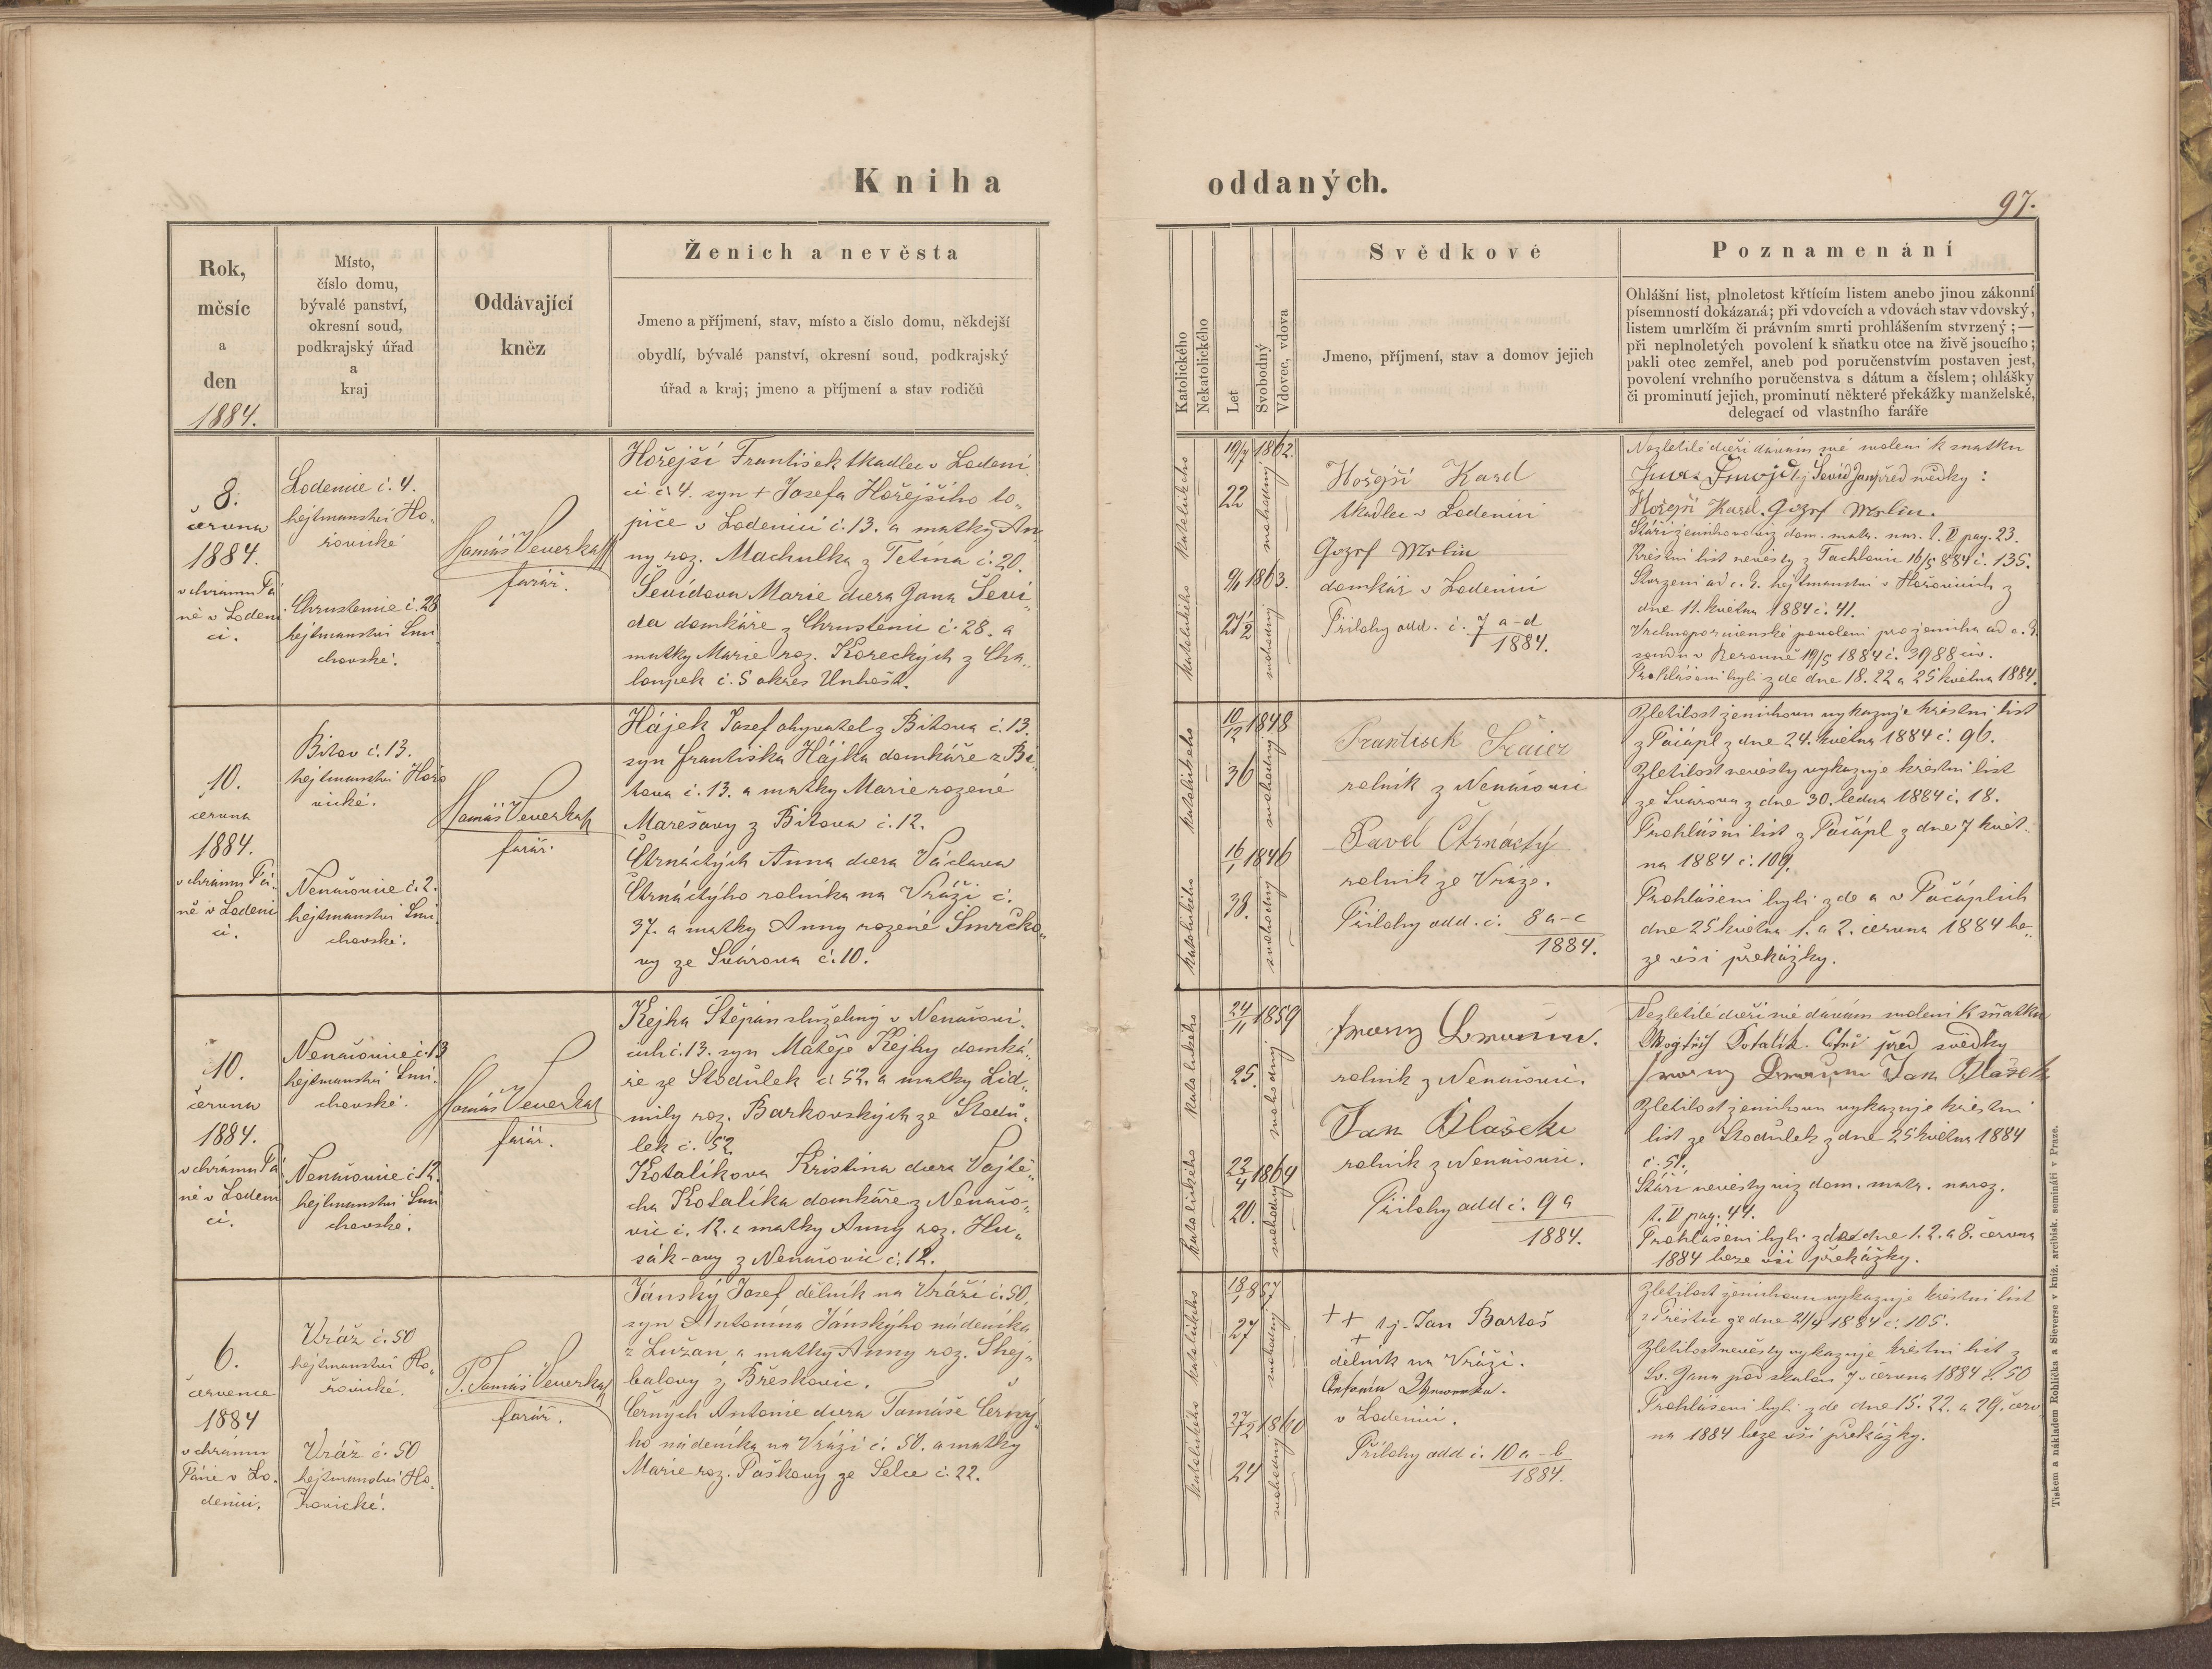 Kniha
oddaných.
97.
Rok,
měsíc
a
den
1884.
Místo,
číslo domu,
bývalé panství,
okresní soud,
podkrajský úřad
a
kraj
Oddávající
kněz
Ženich a nevěsta
Jmeno a příjmení, stav, místo a číslo domu, někdejší
obydlí, bývalé panství, okresní soud, podkrajský
úřad a kraj; jmeno a příjmení a stav rodičů
Katolického
Nekatolického
Let
Svobodný
Vdovec, vdova
Svědkové
Jmeno, příjmení, stav a domov jejich
Poznamenání
Ohlášní list, plnoletost křtícím listem anebo jinou zákonní
písemností dokázaná; při vdovcích a vdovách stav vdovský,
listem umrlčím či právním smrti prohlášením stvrzený; —
při neplnoletých povolení k sňatku otce na živě jsoucího;
pakli otec zemřel, aneb pod poručenstvím postaven jest,
povolení vrchního poručenstva s dátum a číslem; ohlášky
či prominutí jejich, prominutí některé překážky manželské,
delegací od vlastního faráře
8.
června
1884.
v chrámu Pá
ně v Loděni
ci.
Loděnice č. 4.
hejtmanství Ho„
řovické
Chrustenice č. 28
hejtmanství Smí
chovské.
Tomáš Veverka
farář.
Hořejší František tkadlec v Loděni
ci č. 4. syn + Josefa Hořejšího to„
piče v Loděnici č. 13. a matky An
ny roz. Machulka z Tetína č. 20.
Ševídova Marie dcera Jana Ševí
da domkáře z Chrustenic č. 28. a
matky Marie roz. Koreckých z Cha„
loupek č. 5 okres Unhošt.
katolického
19/7 1862.
22
svobodný
katolického
1863.
svobodný
Hořejší Karel
tkadlec v Loděnici
Jozef Merlin
domkář v Loděnici
Přílohy odd. č. 7 a-d
1884.
Nezletilé dceři dávám své svolení k sňatku
Ševíd Jan před svědky:
Hořejší Karel. Jozef Merlin.
Stáří ženichovo viz dom. matr. nar. t. II pag. 23.
Křestní list nevěsty z Tachlovic 16/5 884 č. 135.
Stvrzení od c. k. hejtmanství v Hořovicích z
dne 11. května 1884 č. 41.
Vrchnoporučenské povolení pro ženicha od c. k.
soudu v Berouně 19/5 1884 č. 3988 civ.
Prohlášeni byli zde dne 18. 22 a 25 května 1884.
10.
června
1884.
v chrámu Pá-
ně v Loděni
ci.
Bítov č. 13.
hejtmanství Hořo
vické.
Nenačovice č. 2.
hejtmanství Smí
chovské.
Tomáš Veverka
farář.
Hájek Josef obyvatel z Bítova č. 13.
syn Františka Hájka domkáře z Bí
tova č. 13. a matky Marie rozené
Marešovy z Bítova č. 12.
Čtrnáctých Anna dcera Václava
Čtrnáctýho rolníka na Vráži č.
37. a matky Anny rozené Smrčko„
vy ze Svárova č. 10.
katolického
10/12 1848
36
svobodný
katolického
16/1 1846
38.
svobodný
František
rolník z Nenačovic
Pavel Čtrnáctý
rolník ze Vráže.
Přílohy odd. č. 8 a-c
1884.
Zletilost ženichovu vykazuje křestní list
z Počápl z dne 24. května 1884 č. 96.
Zletilost nevěsty vykazuje křestní list
ze Svárova z dne 30. ledna 1884 č. 18.
Prohlášní list z Počápl z dne 7 květ-
na 1884 č. 109.
Prohlášeni byli zde a v Počáplích
dne 25 května 1. a 2. června 1884 be„
ze vší překážky.
10.
června
1884.
v chrámu Pá
ně v Loděni
ci.
Nenačovice č. 13
hejtmanství Smí-
chovské.
Nenačovice č. 12.
hejtmanství Smí
chovské.
Tomáš Veverka
farář.
Kejha Štěpán služebný v Nenačovi-
cích č. 13. syn Matěje Kejhy domká-
ře ze Stodůlek č. 52. a matky Lid-
mily roz. Barkovských ze Stodů-
lek č. 52
Kotalíkova Kristina dcera Vojtě-
cha Kotalíka domkáře z Nenačo-
vic č. 12. a matky Anny roz. Hu„
sák-ovy z Nenačovic č. 12.
katolického
24/11 1859
25.
svobodný
katolického
1864
20.
svobodný
rolník z Nenačovic.
Jan Blažek
rolník z Nenačovic.
Přílohy odd č. 9 a
1884.
Nezletilé dceři mé dávám svolení k sňatku
Kotalík. před svědky
Jan Blažek
Zletilost ženichovu vykazuje křestní
list ze Stodůlek z dne 25 května 1884
č. 51.
Stáří nevěsty viz dom. matr. naroz.
t. II pag. 44.
Prohlášeni byli zde dne 1. 2. a 8. června
1884 beze vší překážky.
6.
července
1884
v chrámu
Páně v Lo-
děnici.
Vráž č. 50
hejtmanství Ho-
řovické.
Vráž č. 50
hejtmanství Ho-
řovické.
P. Tomáš Veverka
farář.
Jánský Josef dělník na Vráži č. 50,
syn Antonína Jánskýho nádeníka
z Lužan, a matky Anny roz. Skej„
balovy z Břeskovic.
Černých Antonie dcera Tomáše Černý-
ho nádeníka na Vráži č. 50. a matky
Marie roz. Paškovy ze Selce č. 22.
katolického
27
svobodný
katolického
27/2 1860
24
svobodný
+ + + tj. Jan Bartoš
dělník na Vráži.
Antonín
v Loděnici.
Přílohy odd č. 10 a-b
1884.
Zletilost ženichovu vykazuje křestní list
z Přeštic ze dne 21/4 1884 č. 105.
Zletilost nevěsty vykazuje křestní list z
Sv. Jana pod skalou 7. června 1884 č. 50
Prohlášeni byli zde dne 15. 22. a 29. červ
na 1884 beze vší překážky.
Tiskem a nákladem Rohlíčka a Sieverse v kníž. arcibisk. semináři v Praze.